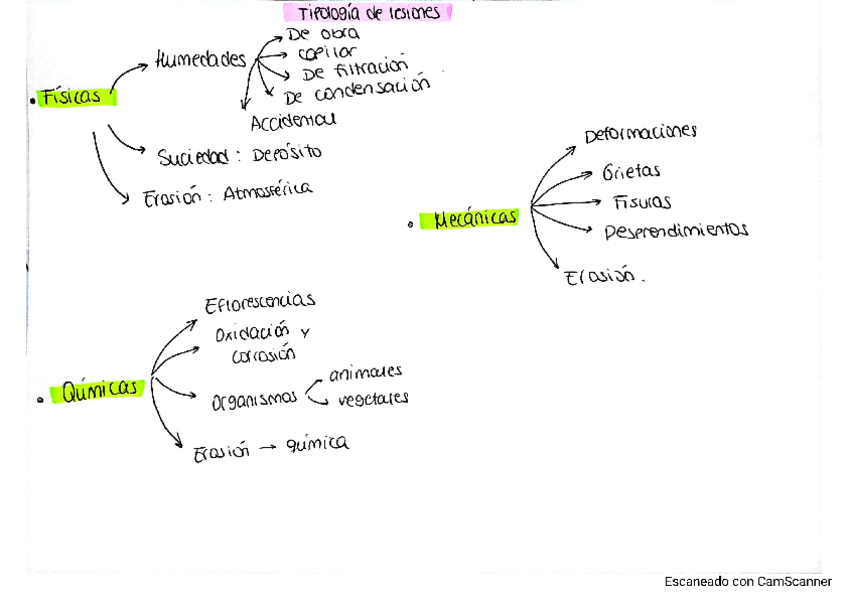 Tipología de lesiones
• Físicas
Humedades
De obra
capilar
De filtración
De condensación
Accidental
Suciedad: Depósito
Erosión: Atmosférica
• Mecánicas
Deformaciones
Grietas
Fisuras
Desprendimientos
Erosión.
• Químicas
Eflorescencias
Oxidación y
corrosión
Organismos
animales
vegetales
Erosión → química
Escaneado con CamScanner